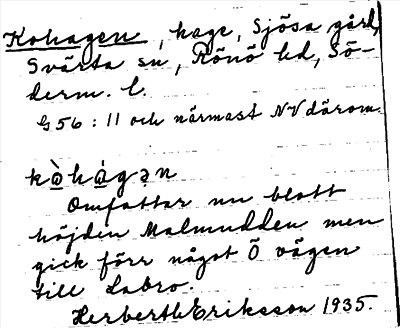 Kohagen, hage, Sjösa gård,
Svärta sn, Rönö hd, Sö-
derm. l.
G56 : 11 och närmast NV därom.
kòhágən
Omfattar nu blott
höjden Malmudden men
gick förr något Ö vägen
till Labro.
Herbert Eriksson 1935.